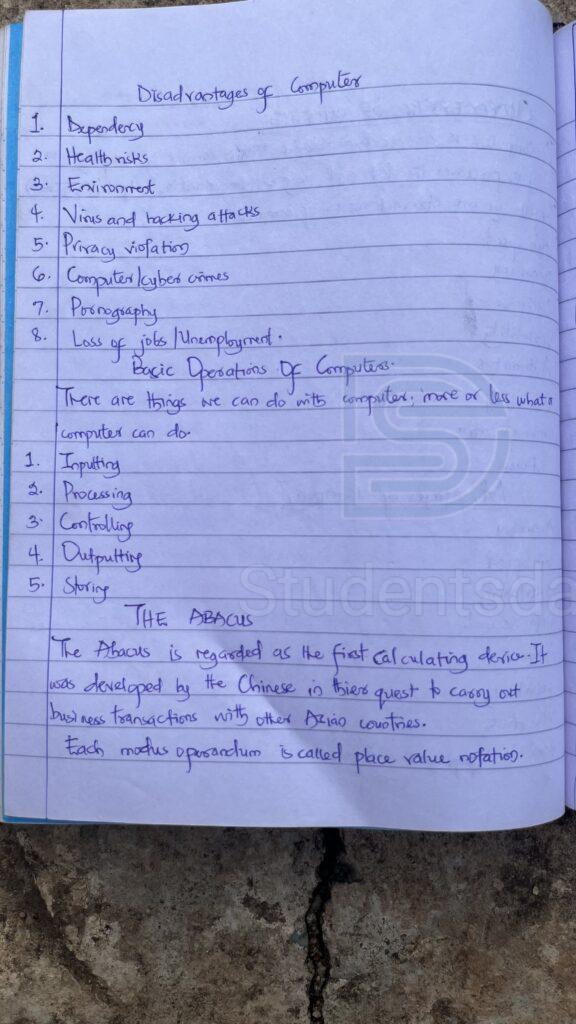 Disadvantages of Computer
1. Dependency
2. Health risks
3. Environment
4. Virus and hacking attacks
5. Privacy violation
6. Computer/cyber crimes
7. Pornography
8. Loss of jobs/Unemployment.
Basic Operations Of Computers.
There are things we can do with computer, more or less what a
computer can do.
1. Inputting
2. Processing
3. Controlling
4. Outputting
5. Storing
Studentsda
THE ABACUS
The Abacus is regarded as the first calculating device. It
was developed by the Chinese in thier quest to carry out
business transactions with other Asian countries.
Each modus operandum is called place value notation.